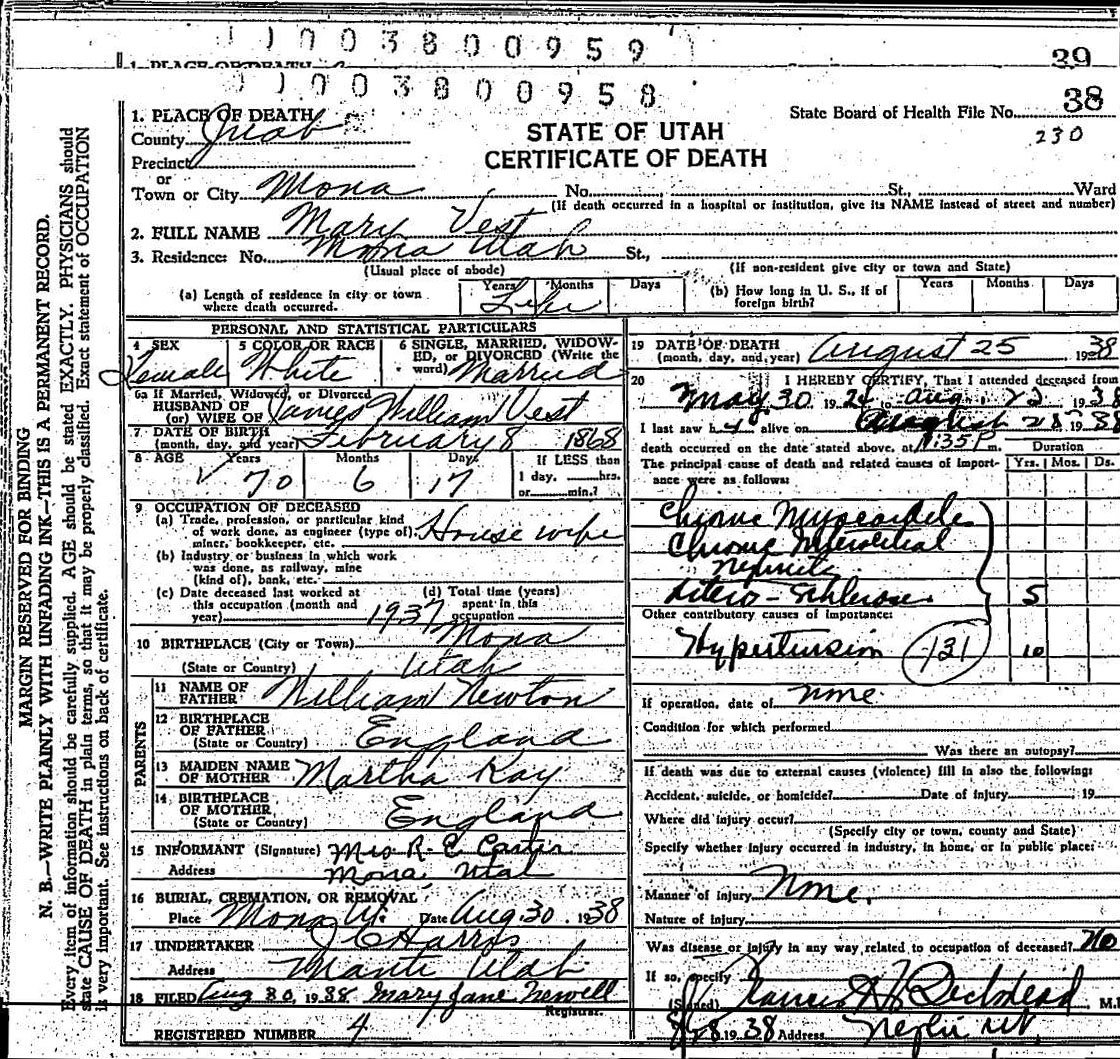 1 0 0 3 8 0 0 9 5 9
39
1. PLACE OF DEATH
1 0 0 3 8 0 0 9 5 8
State Board of Health File No. 38
230
1. PLACE OF DEATH
County Juab
STATE OF UTAH
CERTIFICATE OF DEATH
Precinct
or
Town or City Mona No. St., Ward
(If death occurred in a hospital or institution, give its NAME instead of street and number)
2. FULL NAME Mary Vest
3. Residence: No. Mona Utah St.,
(Usual place of abode) (If non-resident give city or town and State)
(a) Length of residence in city or town where death occurred. Years Months Days Life
(b) How long in U. S., if of foreign birth? Years Months Days
MARGIN RESERVED FOR BINDING
N. B.—WRITE PLAINLY WITH UNFADING INK—THIS IS A PERMANENT RECORD.
Every item of information should be carefully supplied. AGE should be stated EXACTLY. PHYSICIANS should
state CAUSE OF DEATH in plain terms, so that it may be properly classified. Exact statement of OCCUPATION
is very important. See instructions on back of certificate.
PERSONAL AND STATISTICAL PARTICULARS
4 SEX Female
5 COLOR OR RACE White
6 SINGLE, MARRIED, WIDOW-
ED, or DIVORCED (Write the
word) Married
6a If Married, Widowed, or Divorced
HUSBAND OF
(or) WIFE OF James William Vest
7 DATE OF BIRTH
(month, day, and year) February 8 1868
8 AGE Years Months Days If LESS than
1 day, hrs.
or min.?
70 6 17
9 OCCUPATION OF DECEASED
(a) Trade, profession, or particular kind
of work done, as engineer (type of), House wife
miner, bookkeeper, etc.
(b) Industry or business in which work
was done, as railway, mine
(kind of), bank, etc.
(c) Date deceased last worked at
this occupation (month and
year) 1937
(d) Total time (years)
spent in this
occupation
10 BIRTHPLACE (City or Town) Mona
(State or Country) Utah
PARENTS
11 NAME OF
FATHER William Newton
12 BIRTHPLACE
OF FATHER England
(State or Country)
13 MAIDEN NAME
OF MOTHER Martha Kay
14 BIRTHPLACE
OF MOTHER England
(State or Country)
15 INFORMANT (Signature) Mrs R. E. Carter
Address Mona, Utah
16 BURIAL, CREMATION, OR REMOVAL
Place Mona Ut. Date Aug 30. 1938
17 UNDERTAKER J C Harris
Address Manti Utah
18 FILED Aug 30, 1938 Mary Jane Newell
Registrar.
REGISTERED NUMBER 4
19 DATE OF DEATH
(month, day, and year) August 25 1938
20 I HEREBY CERTIFY, That I attended deceased from
May 30 19 to Aug. 1938
I last saw h alive on 1938
death occurred on the date stated above, at 1:35 P m.
Duration
The principal cause of death and related causes of import-
ance were as follows: Yrs. Mos. Ds.
Chronic
Chronic
5
Other contributory causes of importance:
Hypertension 131 10
If operation, date of none
Condition for which performed
Was there an autopsy?
If death was due to external causes (violence) fill in also the following:
Accident, suicide, or homicide? Date of injury 19
Where did injury occur?
(Specify city or town, county and State)
Specify whether injury occurred in industry, in home, or in public place:
Manner of injury None.
Nature of injury
Was disease or injury in any way related to occupation of deceased? No
If so, specify
(Signed) M.D.
1938 Address Nephi Ut.